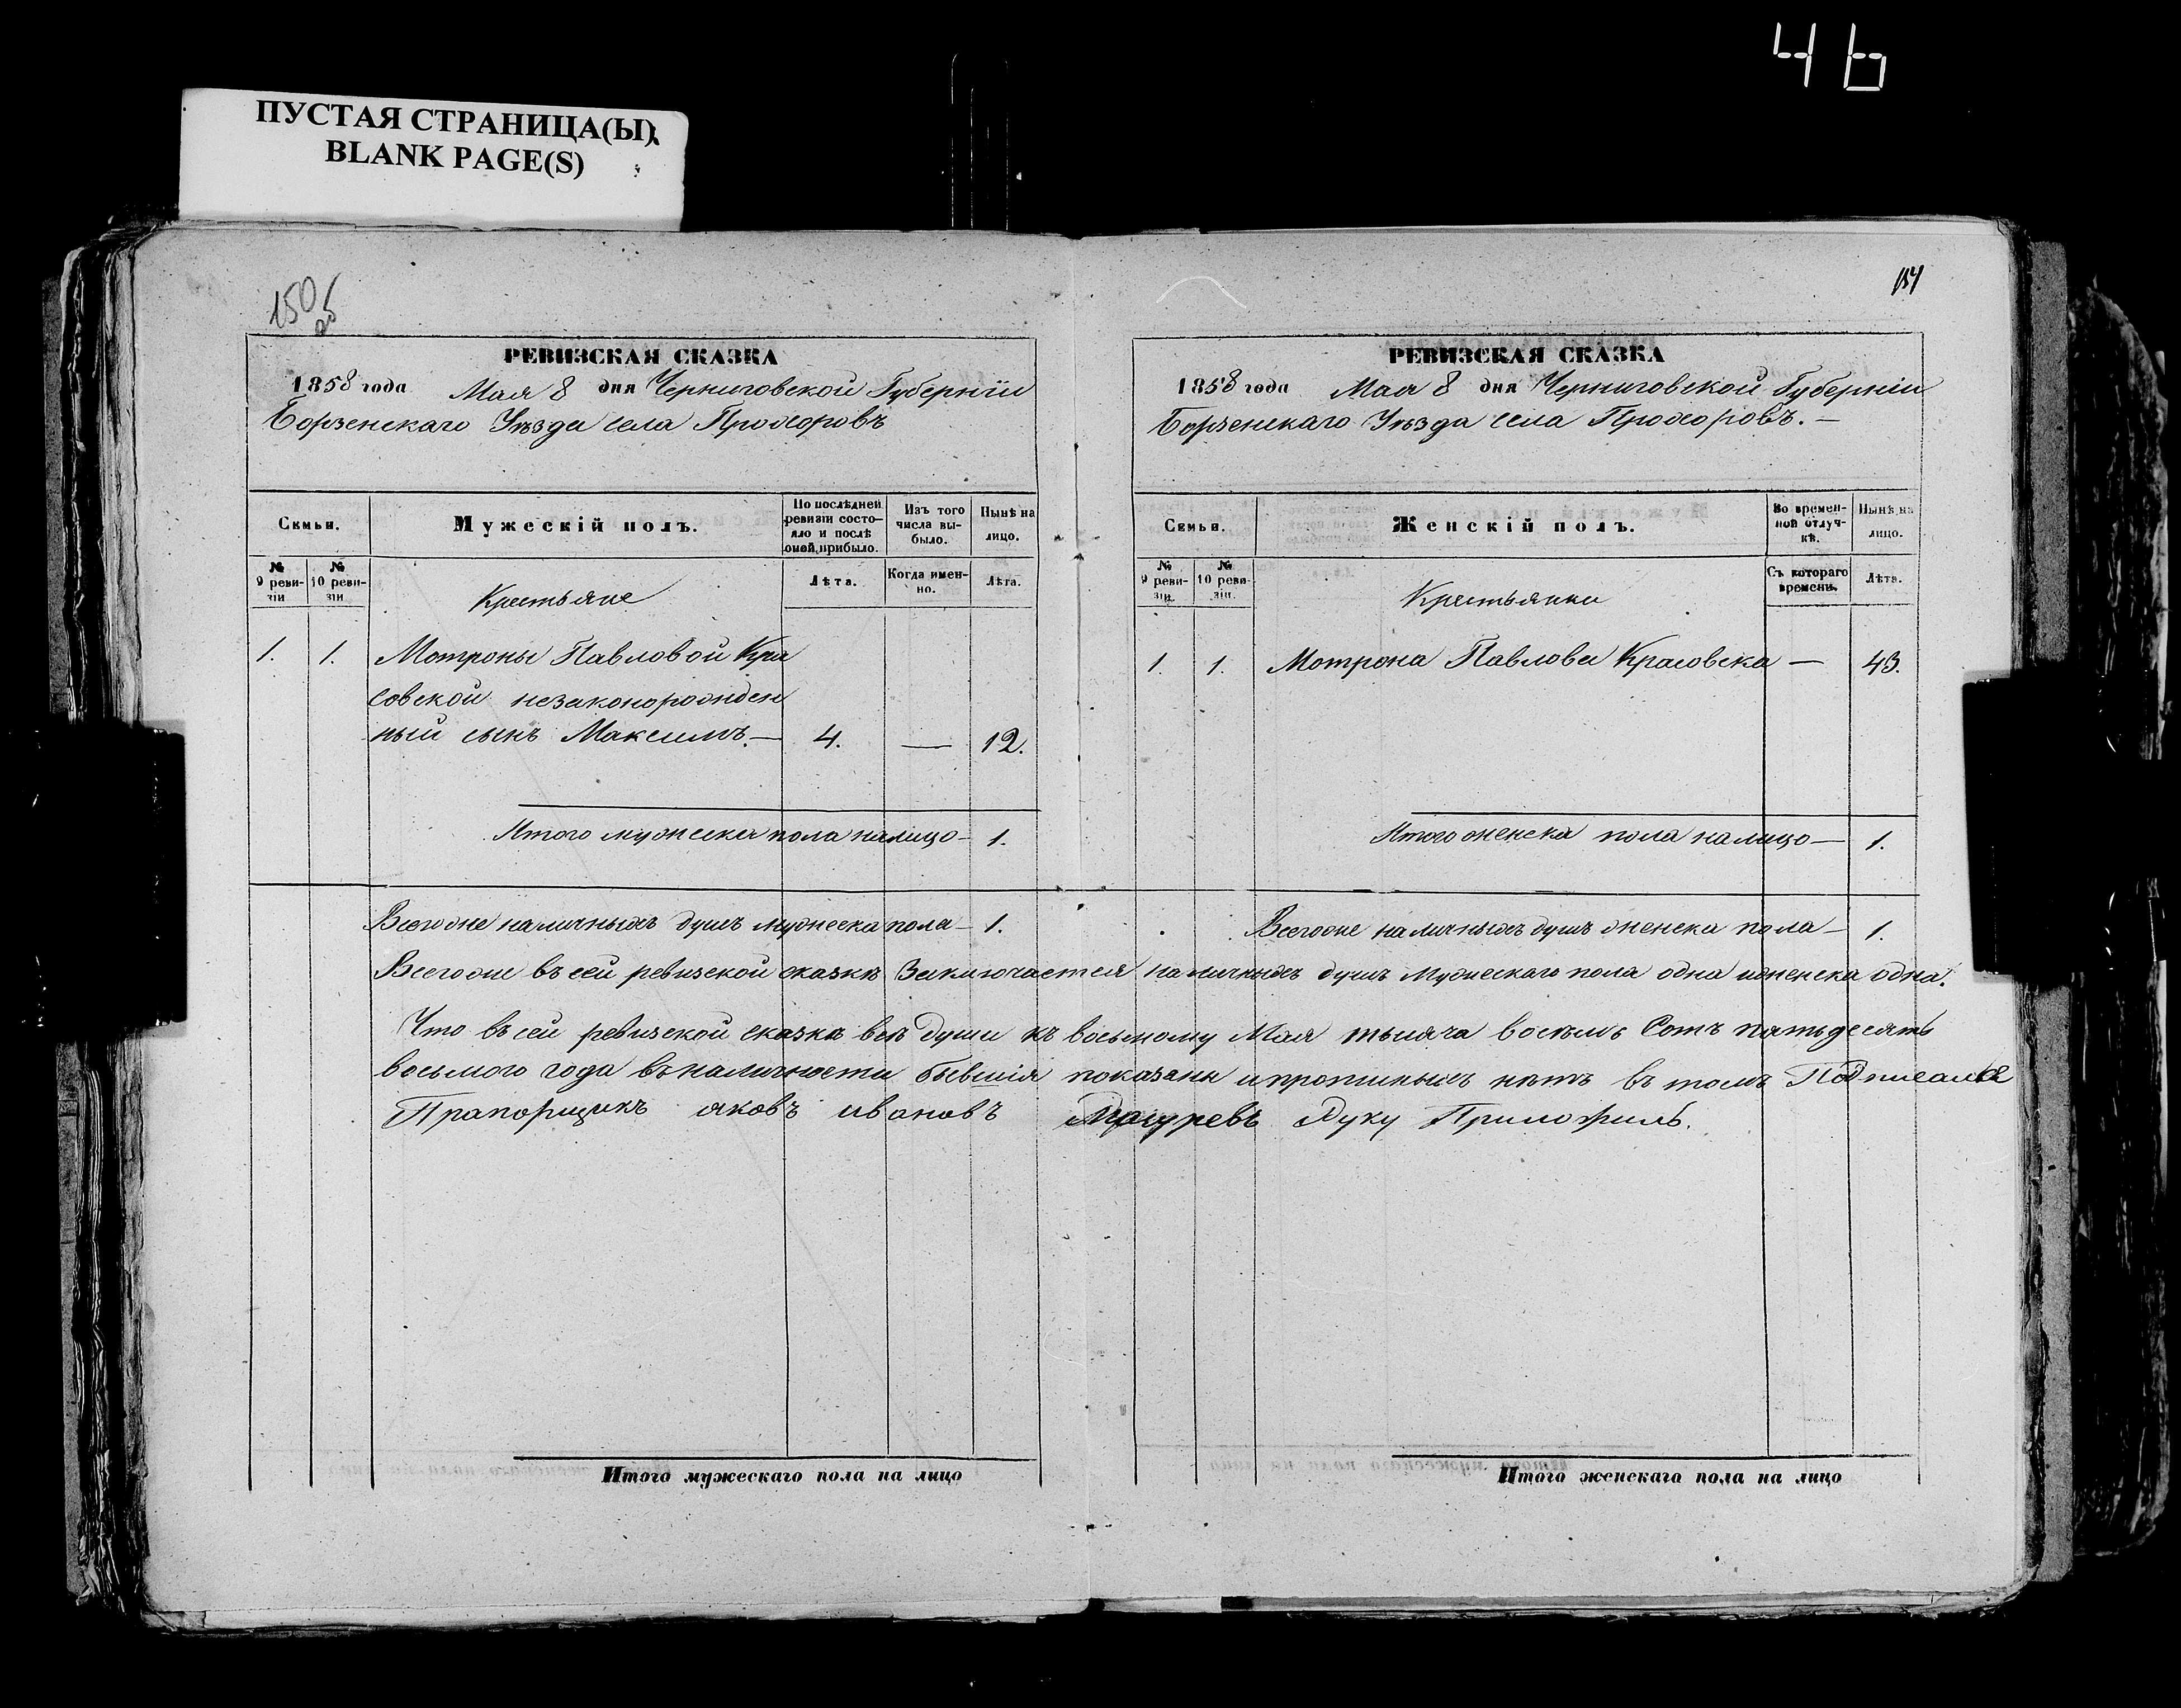 46
ПУСТАЯ СТРАНИЦА(Ы).
BLANK PAGE(S)
150
об
РЕВИЗСКАЯ СКАЗКА
1858 года Мая 8 дня Черниговской Губерніи
Борзенскаго Уѣзда села Прохоровъ
Семьи.
Мужескій полъ.
По послѣдней ревизіи состояло и послѣ оной прибыло.
Изъ того числа выбыло.
Нынѣ на лицо.
№ 9 ревизіи
№ 10 ревизіи
Крестьяне
Лѣта.
Когда именно.
Лѣта.
1. 1. Мотроны Павловой Кра
совской незаконорожден
ный сынъ Максимъ — 4. — 12.
Итого мужеска пола налицо — 1.
151
РЕВИЗСКАЯ СКАЗКА
1858 года Мая 8 дня Черниговской Губерніи
Борзенскаго Уѣзда села Прохоровъ. —
Семьи.
Женскій полъ.
Во временной отлучкѣ.
Нынѣ на лицо.
№ 9 ревизіи
№ 10 ревизіи.
Крестьянки
Съ котораго времени.
Лѣта.
1. 1. Мотрона Павлова Красовска — 43.
Итого женска пола налицо — 1.
Всегоже наличныхъ душъ мужеска пола — 1.
Всегоже наличныхъ душъ женска пола — 1.
Всегоже въ сей ревизской сказкѣ Заключается наличныхъ душъ Мужескаго пола одна иженска одна.
Что въ сей ревизской сказкѣ всѣ души къ восьмому Мая тысяча восемь Сотъ пятьдесятъ
восьмого года въ наличности бывшія показаны ипрописныхъ нѣтъ въ томъ Подписался
Прапорщикъ яковъ ивановъ Руку Приложилъ.
Итого мужескаго пола на лицо
Итого женскаго пола на лицо